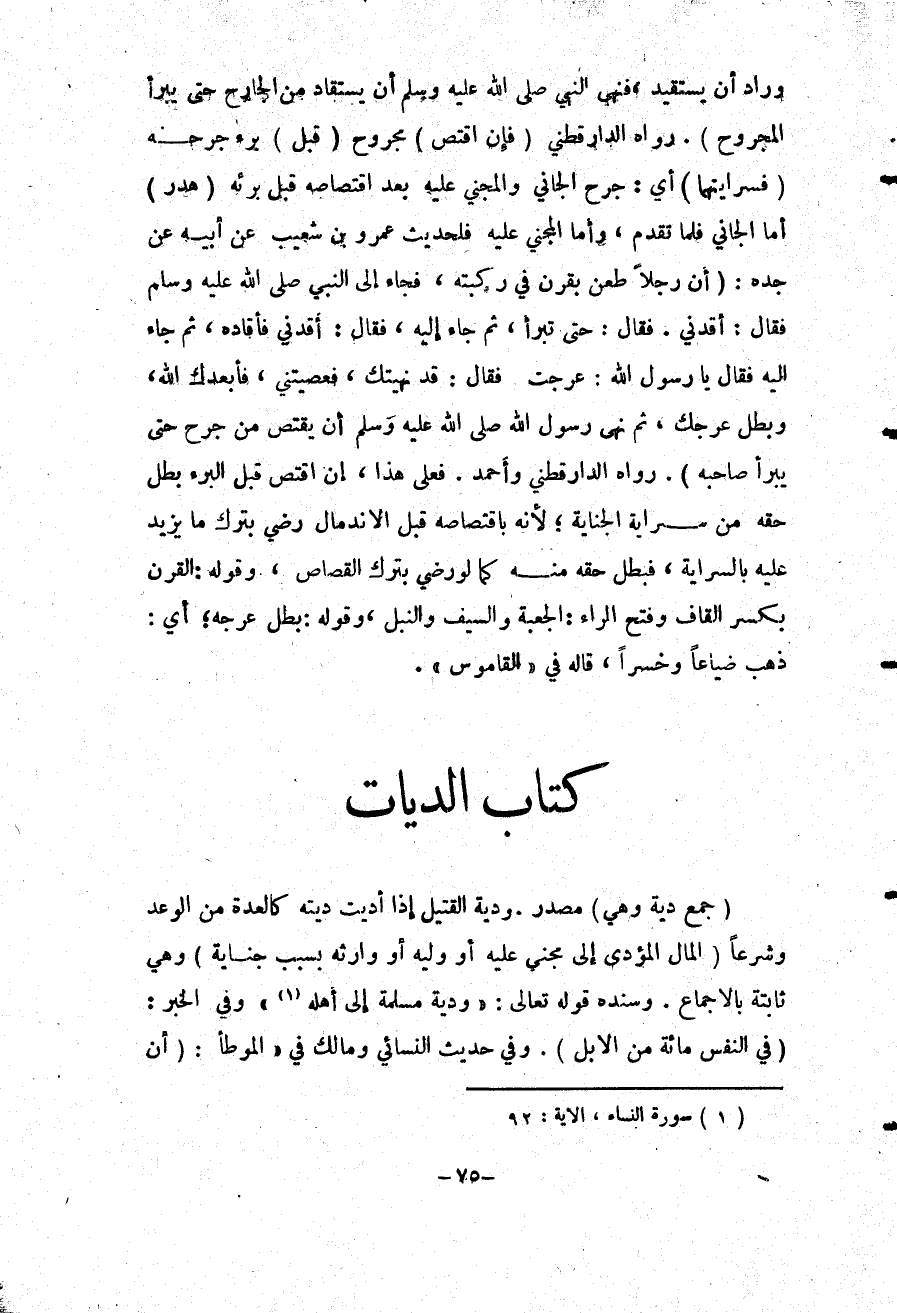 وراد أن يستقيد ، فنهى النبي صلى الله عليه وسلم أن يستقاد من الجارح حتى يبرأ
المجروح ) . رواه الدارقطني ( فإن اقتص ) مجروح ( قبل ) برء جرحـــه
( فسرايتها ) أي : جرح الجاني والمجني عليه بعد اقتصاصه قبل برئه ( هدر )
أما الجاني فلما تقدم ، وأما المجني عليه فلحديث عمرو بن شعيب عن أبيـه عن
جده : ( أن رجلاً طعن بقرن في ركبته ، فجاء إلى النبي صلى الله عليه وسلم
فقال : أقدني . فقال : حتى تبرأ ، ثم جاء إليه ، فقال : أقدني فأقاده ، ثم جاء
اليه فقال يا رسول الله : عرجت فقال : قد نهيتك ، فعصيتني ، فأبعدك الله،
وبطل عرجك ، ثم نهى رسول الله صلى الله عليه وَسلم أن يقتص من جرح حتى
يبرأ صاحبه ) . رواه الدارقطني وأحمد . فعلى هذا ، إن اقتص قبل البرء بطل
حقه من ســـراية الجناية ؛ لأنه باقتصاصه قبل الاندمال رضي بترك ما يزيد
عليه بالسراية ، فبطل حقه منـــه كما لو رضي بترك القصاص ، وقوله : القرن
بكسر القاف وفتح الراء : الجعبة والسيف والنبل ، وقوله : بطل عرجه؛ أي :
ذهب ضياعاً وخسراً ، قاله في « القاموس » .
كتاب الديات
( جمع دية وهي ) مصدر . ودية القتيل إذا أديت ديته كالعدة من الوعد
وشرعاً ( المال المؤدى إلى مجني عليه أو وليه أو وارثه بسبب جنـاية ) وهي
ثابتة بالاجماع . وسنده قوله تعالى : « ودية مسلمة إلى أهله (١) » وفي الخبر :
( في النفس مائة من الابل ) . وفي حديث النسائي ومالك في « الموطأ : ( أن
( ١ ) سورة النساء ، الاية : ٩٢
-٧٥-